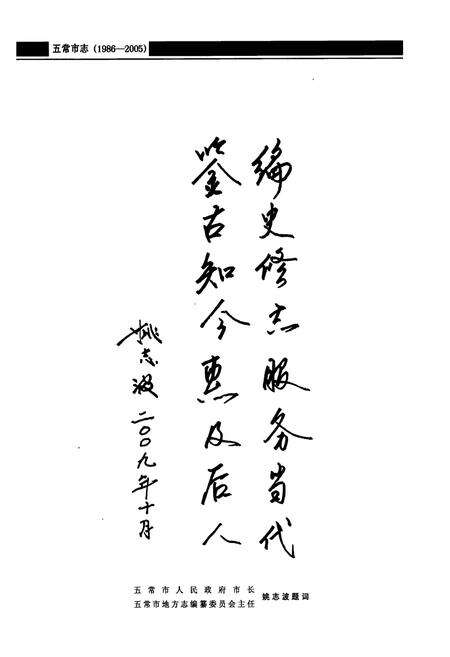 五常市志（1986—2005）
编史修志服务当代
鉴古知今惠及后人
姚志波 二〇〇九年十月
五常市人民政府市长
五常市地方志编纂委员会主任
姚志波题词